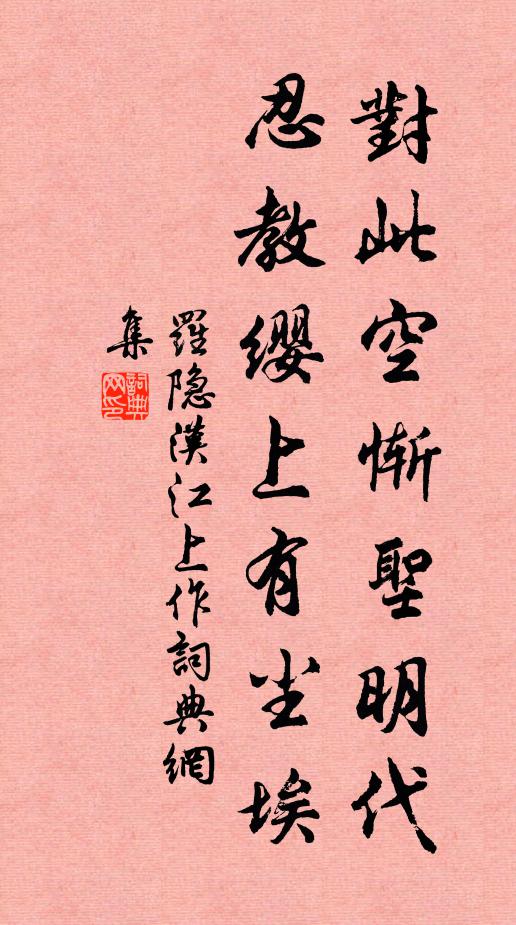 對此空慚聖明代
忍教纓上有尘埃
羅隐漢江上作詞典網
集
詞典網印